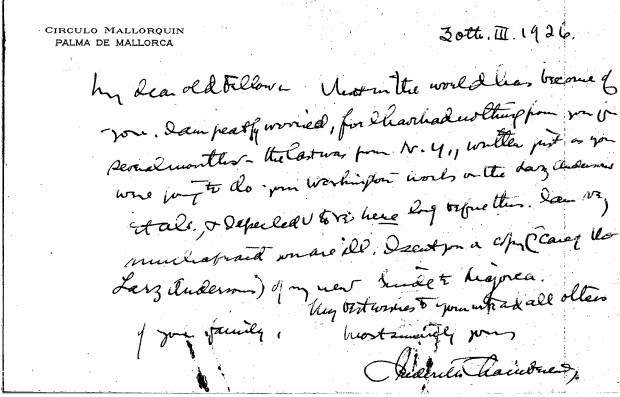 CIRCULO MALLORQUIN
PALMA DE MALLORCA
30th. III. 1926.
My dear old Fellow - What in the world has become of
you. I am greatly worried, for I have had nothing from you for
several months - the last was from N.Y., written just as you
were going to do your Washington work on the Larz Andersons
et als., & expected to be here long before this. I am very
much afraid you are ill. I sent you a copy (care of the
Larz Andersons) of my new Guide to Majorca.
My best wishes to you and all others
of your family,
Most sincerely yours
Frederick